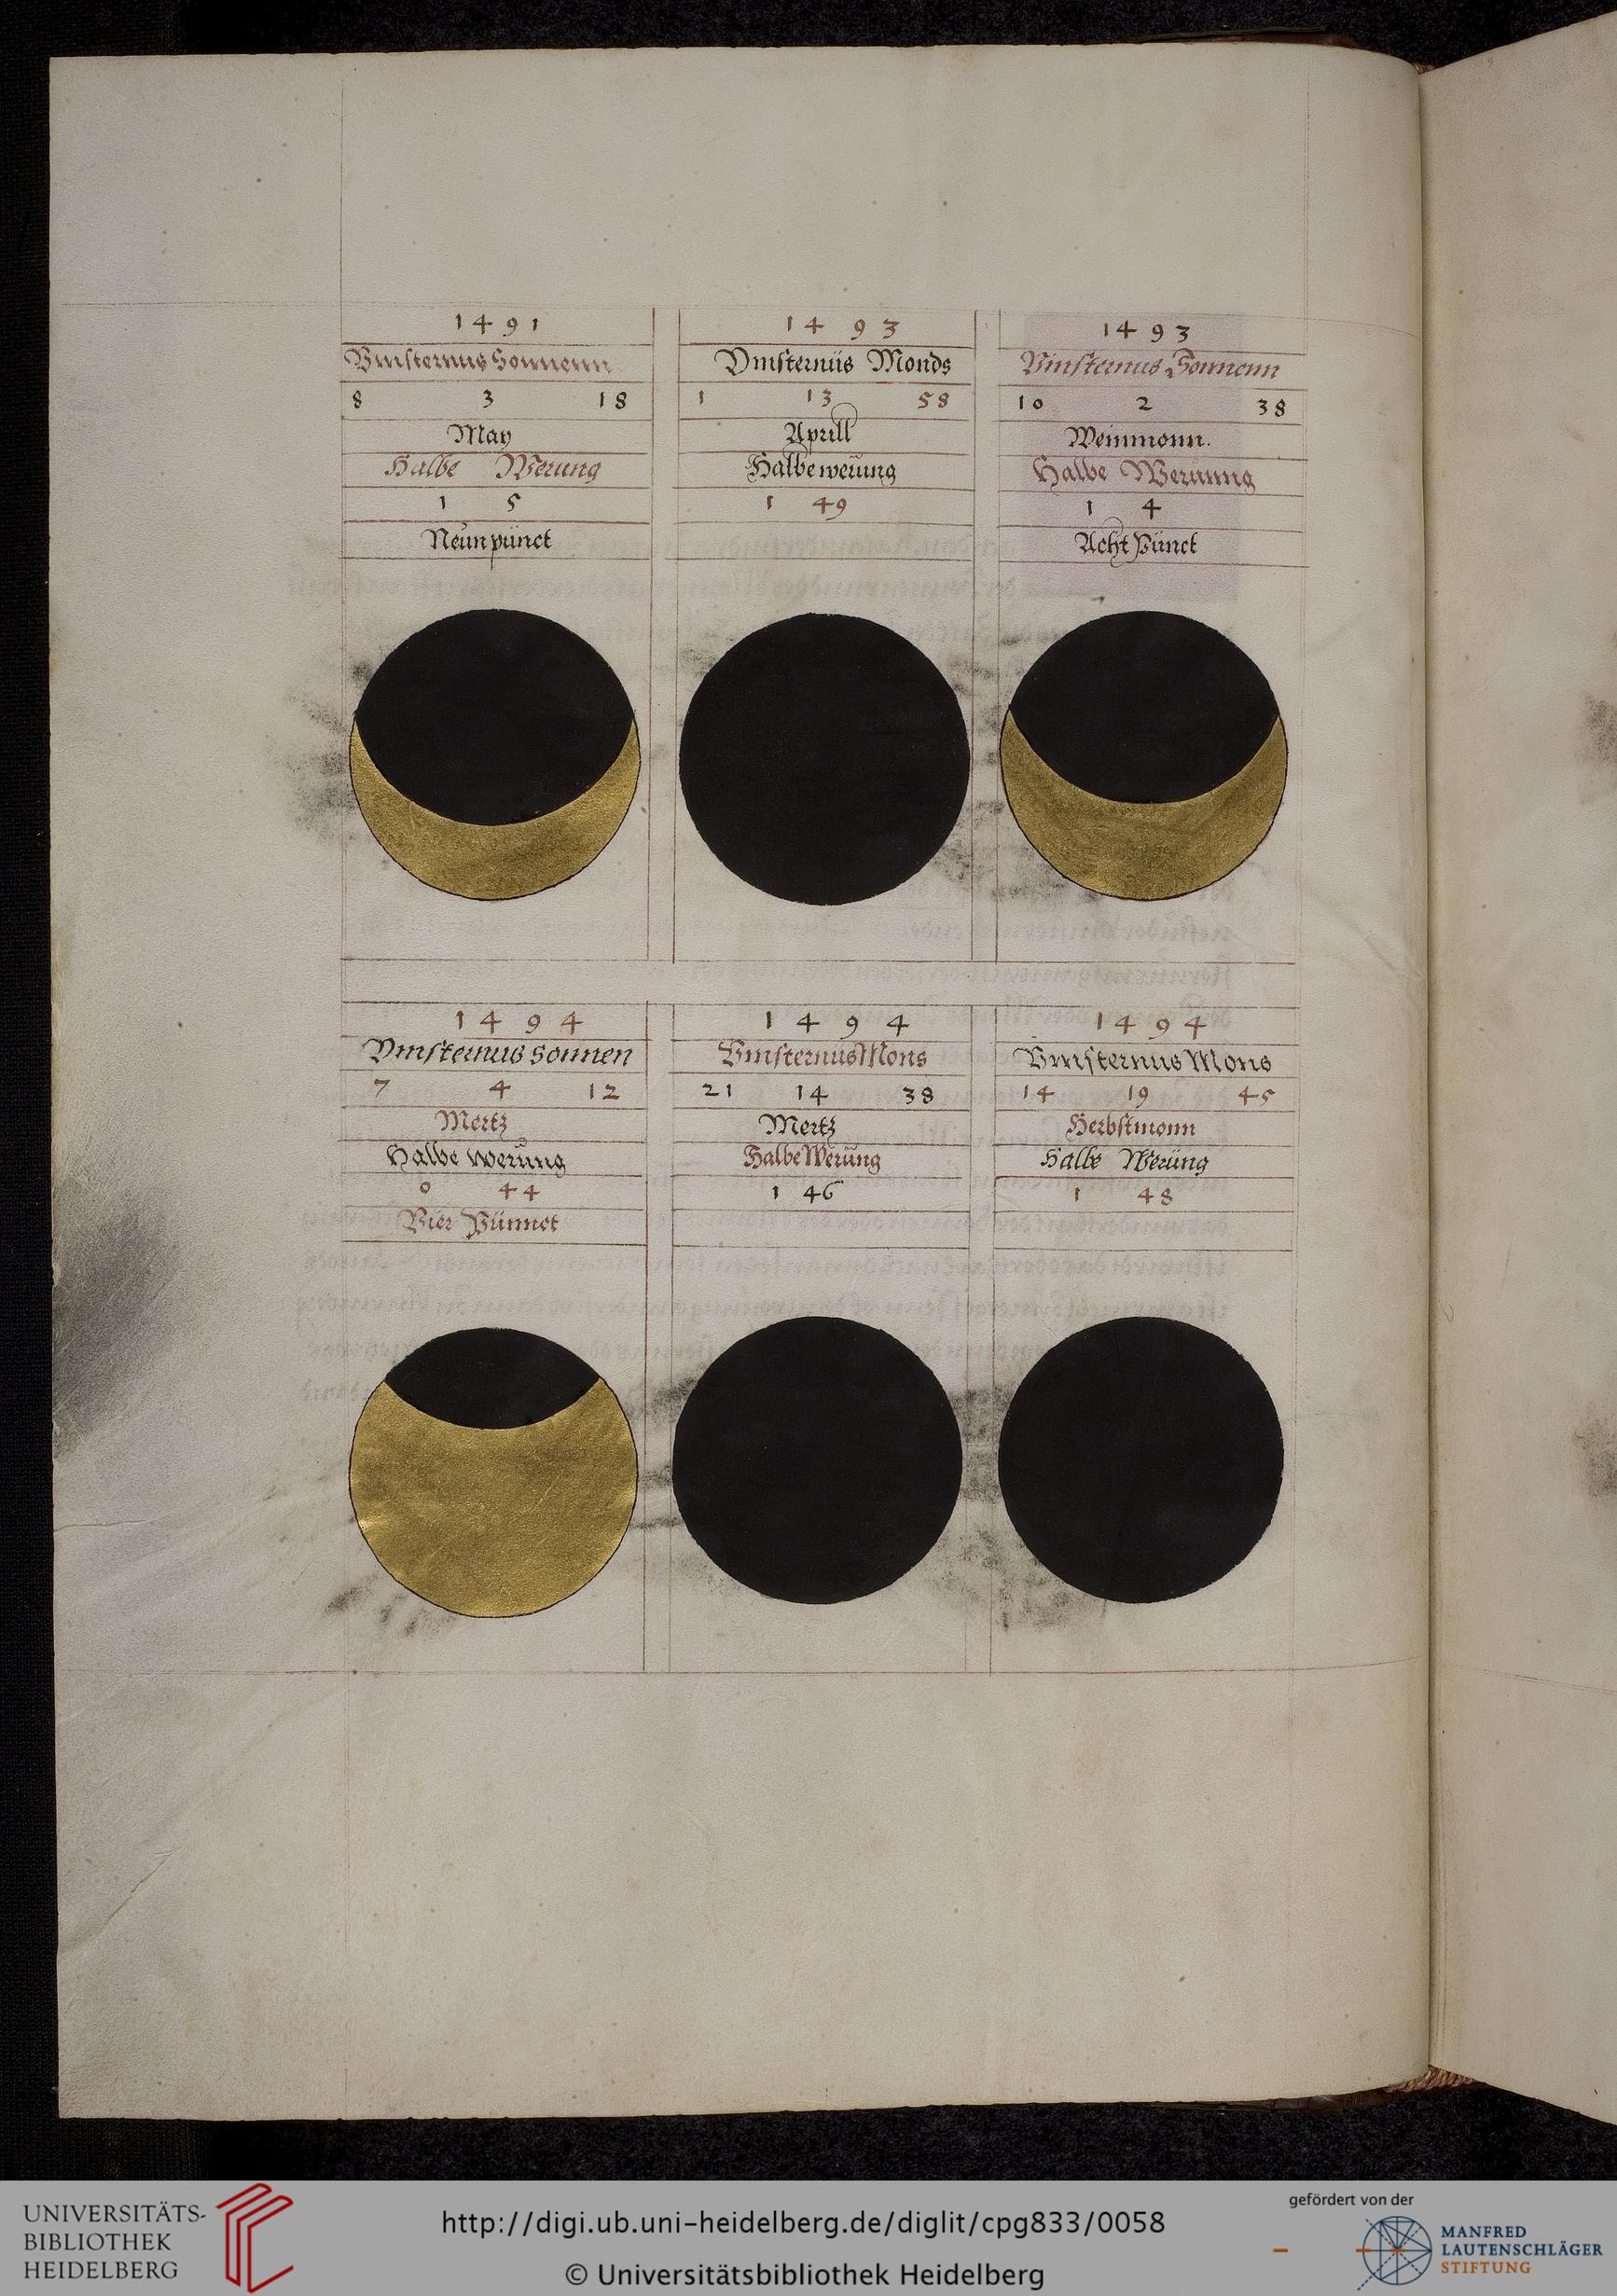 1491
Vinsternus Sonnenn
8 3 18
May
Halbe Werung
1 5
Neün pünct
1493
Vinsternüs Monds
1 13 58
Aprill
Halbe werüng
1 49
1493
Vinsternus Sonnenn
10 2 38
Weinmonn.
Halbe Werunng
1 4
Acht Pünct
1494
Vinsternus sonnen
7 4 12
Mertz
Halbe werüng
0 44
Vier Pünnct
1494
Vinsternüs Mons
21 14 38
Mertz
Halbe Werüng
1 46
1494
Vinsternus Mons
14 19 45
Herbstmonn
Halbe Werüng
1 48
UNIVERSITÄTS-
BIBLIOTHEK
HEIDELBERG
http://digi.ub.uni-heidelberg.de/diglit/cpg833/0058
© Universitätsbibliothek Heidelberg
gefördert von der
MANFRED
LAUTENSCHLÄGER
STIFTUNG